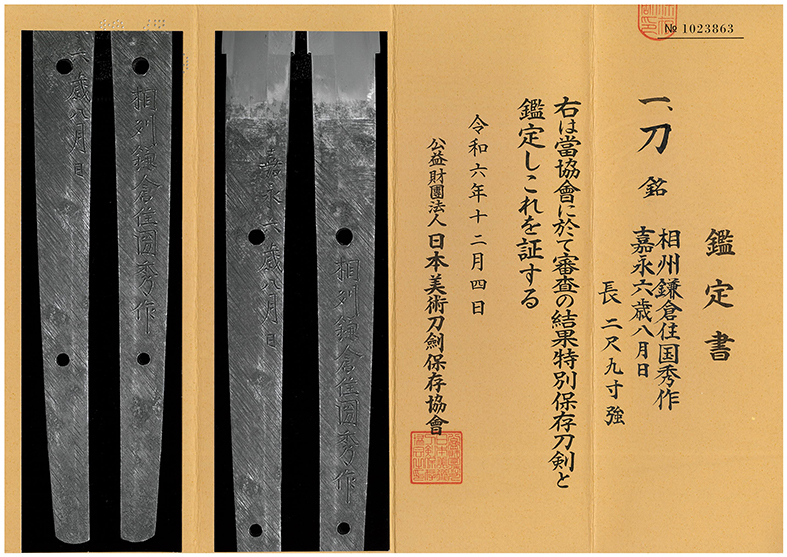 № 1023863
鑑定書
一、刀 銘 相州鎌倉住国秀作
嘉永六歳八月日
長 二尺九寸強
右は當協會に於て審査の結果特別保存刀剣と
鑑定しこれを証する
令和六年十二月四日
公益財團法人 日本美術刀劍保存協會
相州鎌倉住国秀作
嘉永六歳八月日
相州鎌倉住国秀作
六歳八月日